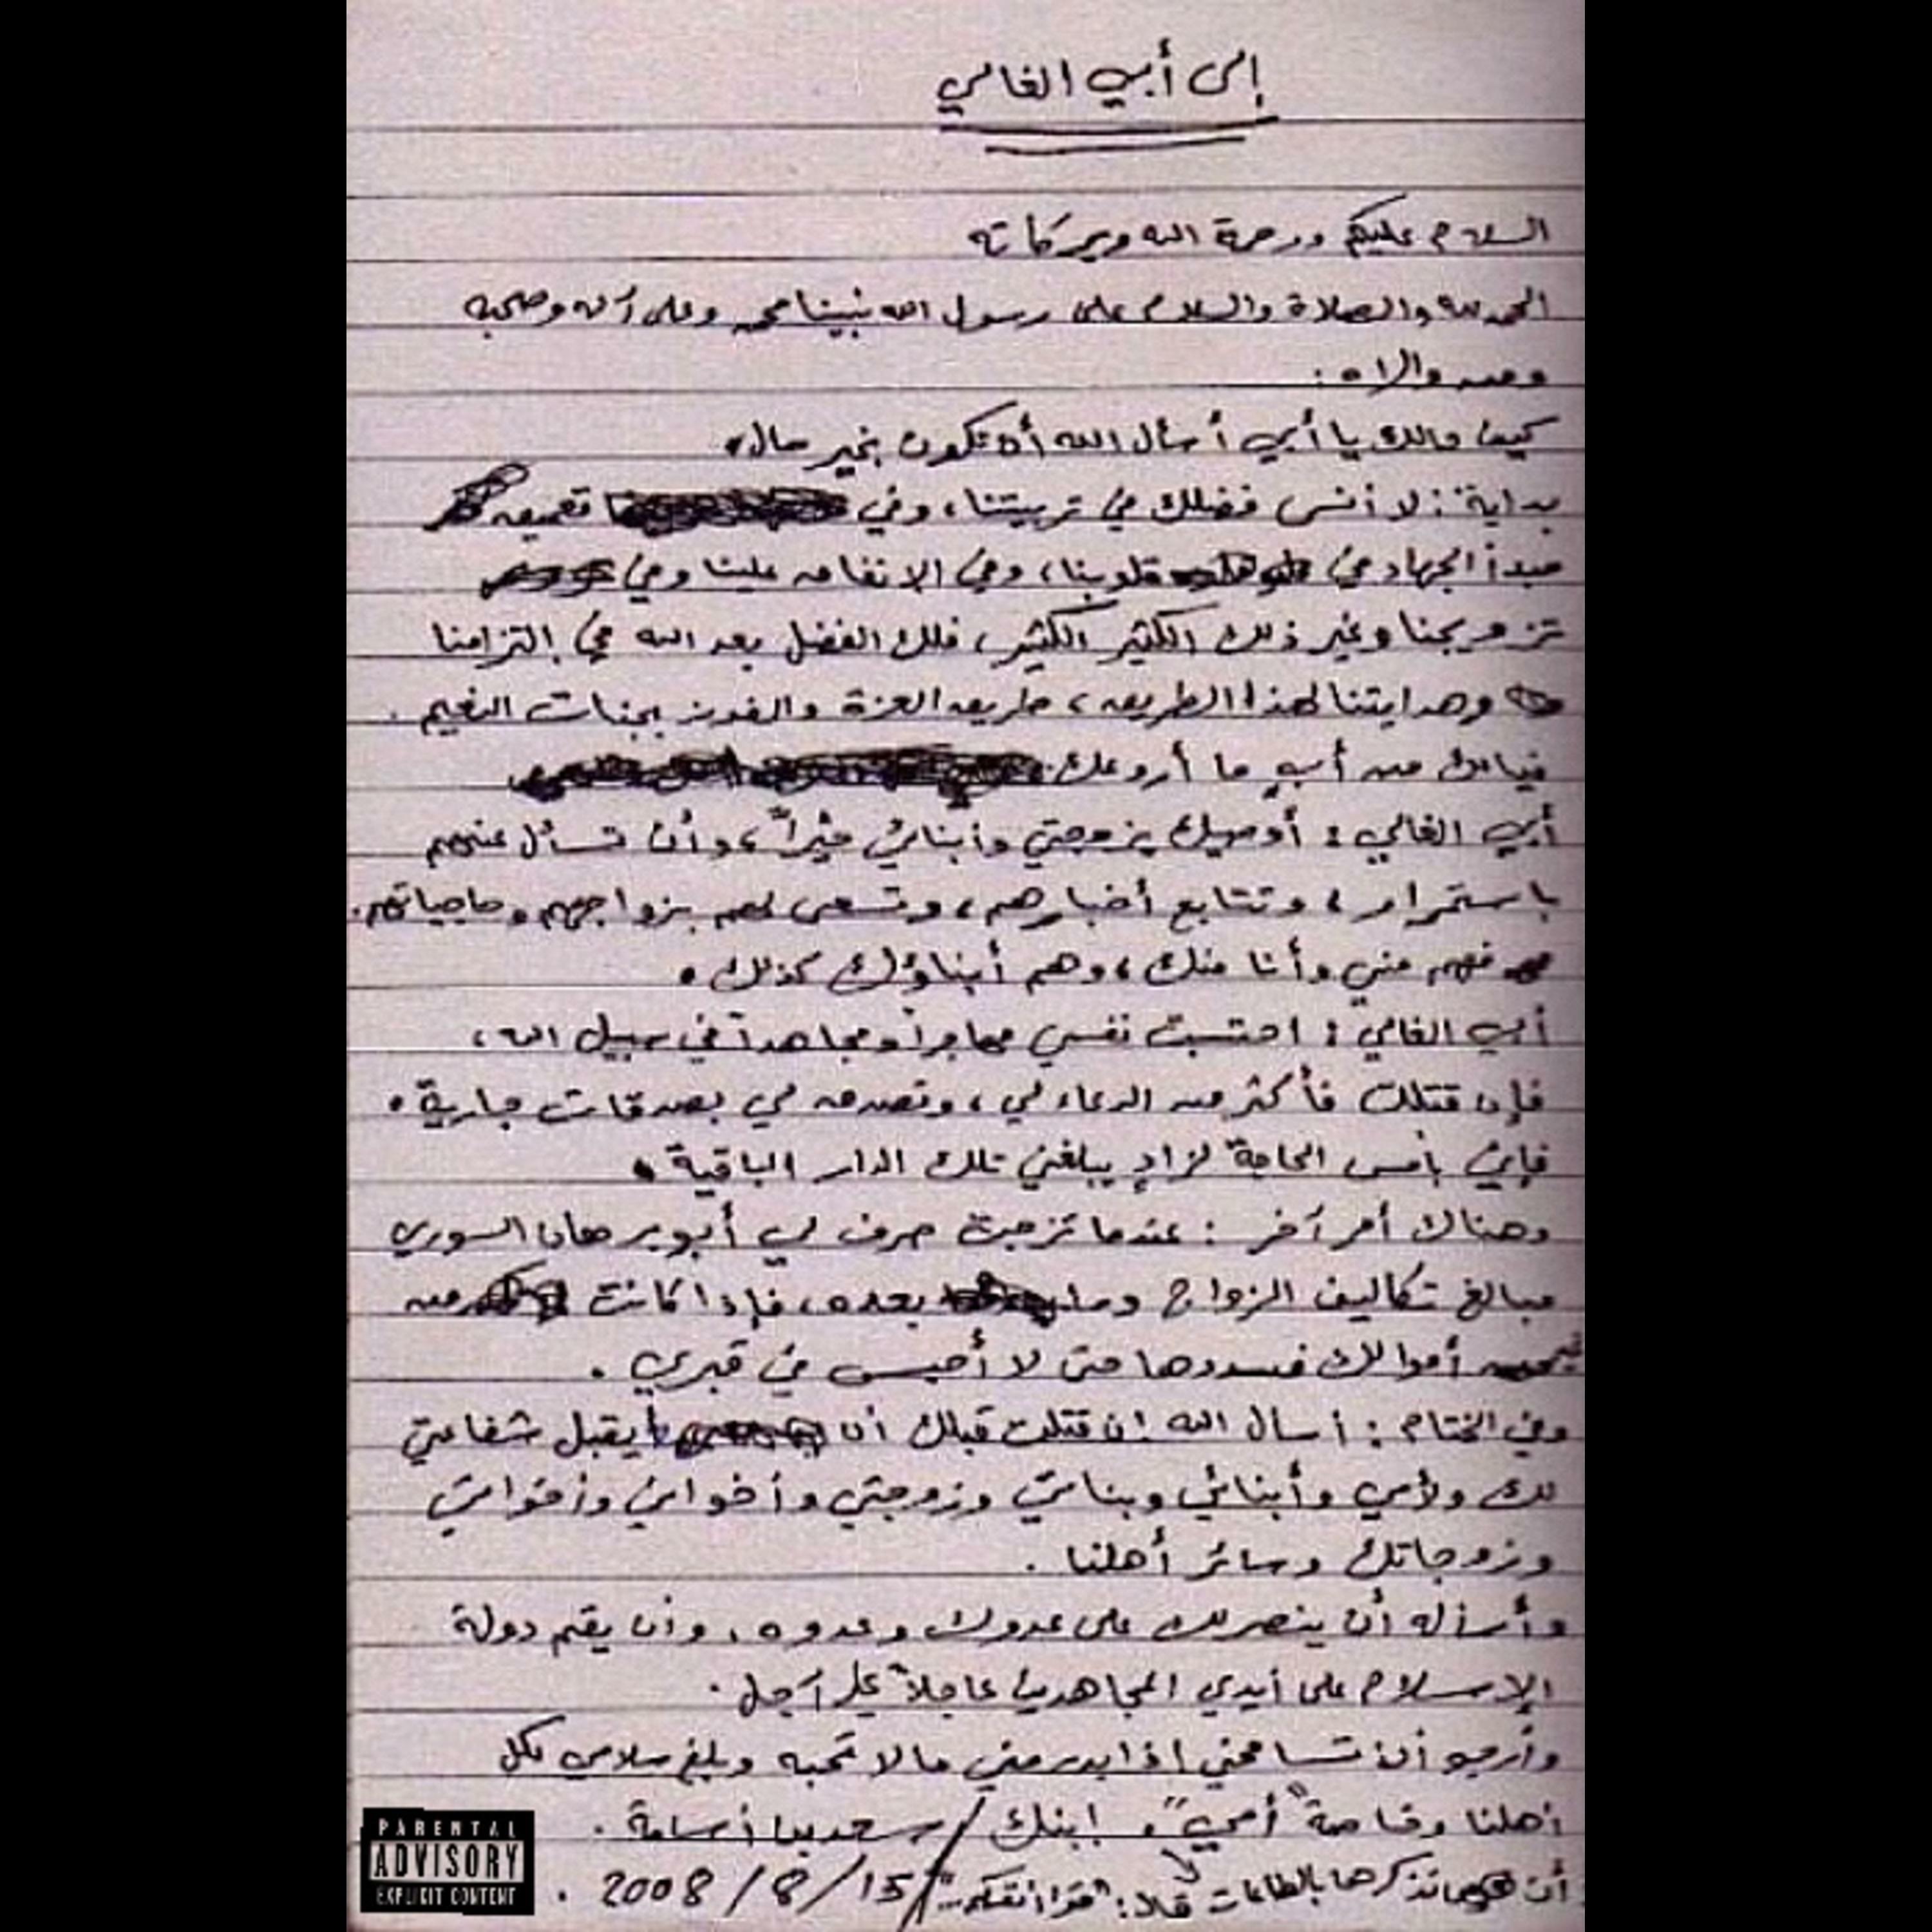 إلى أبي الغالي
السلام عليكم ورحمة الله وبركاته
الحمد لله والصلاة والسلام على رسول الله نبينا محمد وعلى آله وصحبه
ومن والاه:
كيف حالك يا أبي أسأل الله أن تكون بخير حال،
بداية: لا أنسى فضلك في تربيتنا، وفي تعميق
مبدأ الجهاد في قلوبنا، وفي الإنفاق علينا وفي
تزويجنا وغير ذلك الكثير الكثير، فلك الفضل بعد الله في إلتزامنا
وهدايتنا لهذا الطريق، طريق العزة والفوز بجنات النعيم.
فيالك من أبٍ ما أروعك
أبي الغالي: أوصيك بزوجتي وأبنائي خيراً، وأن تسأل عنهم
باستمرار، وتتابع أخبارهم، وتسعى لهم بزواجهم وحاجياتهم.
فهم مني وأنا منك، وهم أبناؤك كذلك.
أبي الغالي: احتسبت نفسي مهاجراً ومجاهداً في سبيل الله،
فإن قتلت فأكثر من الدعاء لي، وتصدق لي بصدقات جارية.
فإني بأمس الحاجة لزادٍ يبلغني تلك الدار الباقية.
وهناك أمر آخر: عندما تزوجت صرف لي أبو برهان السوري
مبالغ تكاليف الزواج وما بعده، فإذا كانت من
أموالك فسددها حتى لا أحبس في قبري.
وفي الختام: أسأل الله إن قتلت قبلك أن يقبل شفاعتي
لك ولأمي وأبنائي وبناتي وزوجتي وأخواني وأخواتي
وزوجاتك وسائر أهلنا.
وأسأله أن ينصرك على عدوك وعدوه، وأن يقيم دولة
الإسلام على أيدي المجاهدين عاجلاً غير آجل.
وأرجو أن تسامحني إذا بدر مني ما لا تحبه وبلغ سلامي لكل
أهلنا وخاصة "أمي". ابنك / سعد بن أسامة.
أن تذكرها بالطاعات "قوا أنفسكم.." 15/8/2008.
PARENTAL
ADVISORY
EXPLICIT CONTENT